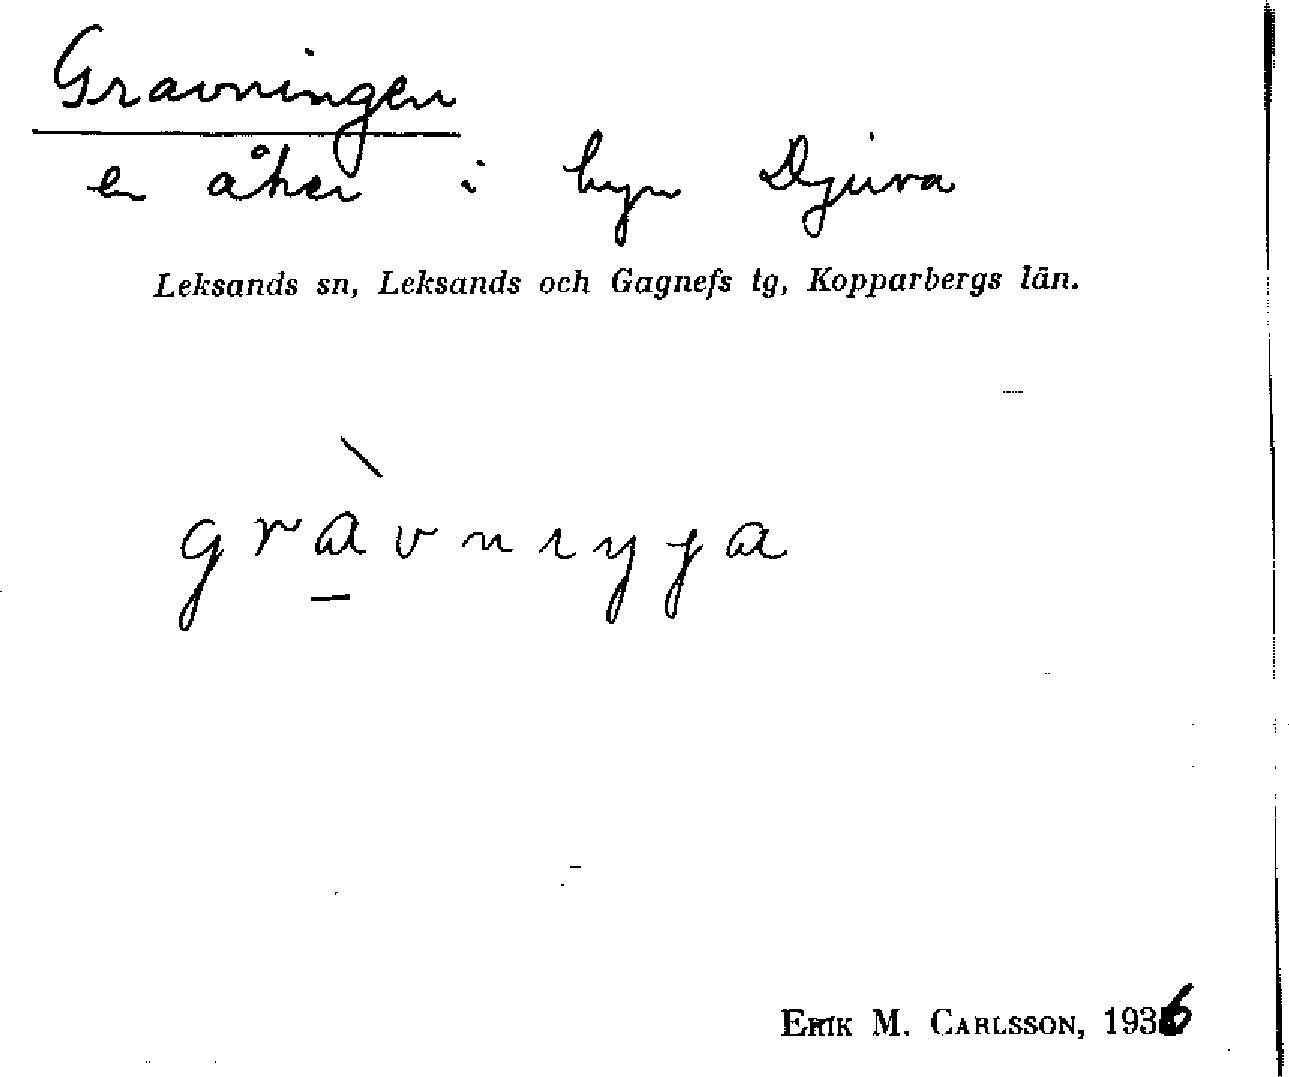 Gravningen
en åker i byn Djura
Leksands sn, Leksands och Gagnefs tg, Kopparbergs län.
gràvnıŋga
ERIK M. CARLSSON, 1936